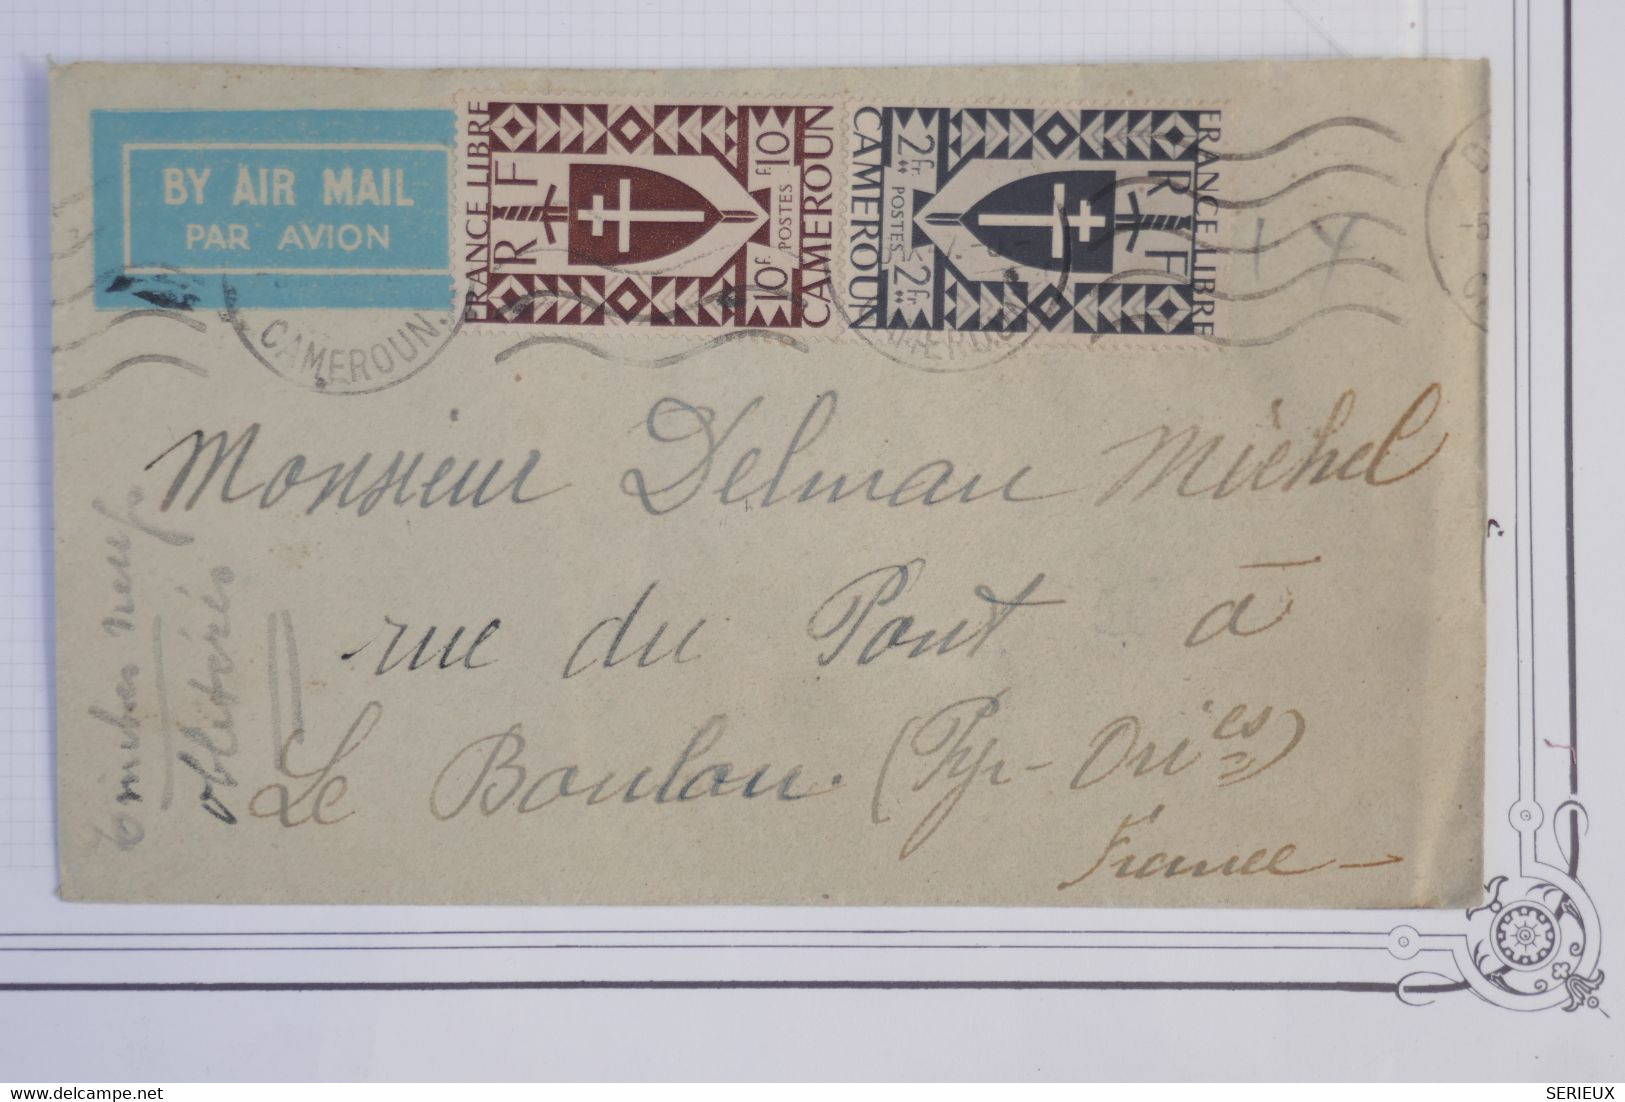 BY AIR MAIL
PAR AVION
FRANCE LIBRE
RF
10F.
F.10
POSTES
CAMEROUN
FRANCE LIBRE
RF
2Fr.
2Fr.
POSTES
CAMEROUN
CAMEROUN.
14
Monsieur Delmau Michel
rue du Pont à
Le Boulou. (Pyr-Ories)
France
timbres neufs
oblitérés
SERIEUX
www.delcampe.net